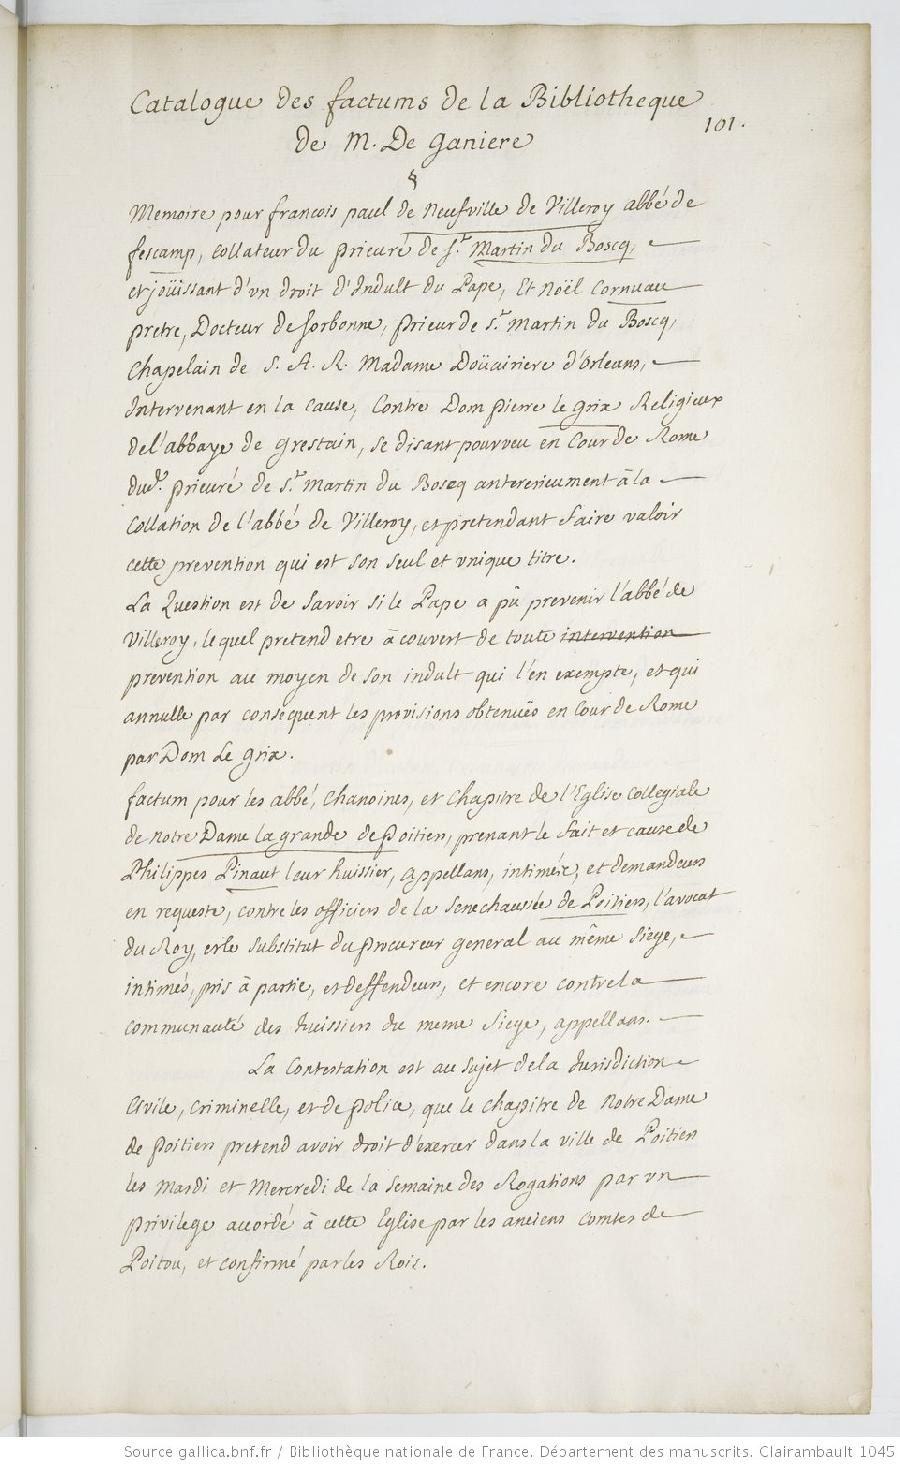 Catalogue des factums de la Bibliotheque
de M. De Ganiere
101.
§
Memoire pour francois paul de Neufville de Villeroy abbé de
fescamp, collateur du prieuré de St. Martin du Boscq,
et joüissant d'vn droit d'Indult du Pape, Et Noël Cornuau
pretre, Docteur de sorbonne, prieur de St. Martin du Boscq,
Chapelain de S. A. R. Madame Doüairiere d'Orleans,
Intervenant en la cause, Contre Dom pierre le grix Religieux
de l'abbaye de grestain, se disant pourveu en Cour de Rome
dud. prieuré de St. Martin du Boscq anterieurement à la
Collation de l'abbé de Villeroy, et pretendant faire valoir
cette prevention qui est son seul et vnique titre.
La Question est de savoir si le Pape a pû prevenir l'abbé de
Villeroy, le quel pretend etre à couvert de toute intervention
prevention au moyen de son indult qui l'en exempte, et qui
annulle par consequent les provisions obtenuës en Cour de Rome
par Dom Le grix.
factum pour les abbé, Chanoines, et Chapitre de l'Eglise Collegiale
de notre Dame la grande de Poitiers, prenant le fait et cause de
Philippes Pinaut leur huissier, appellans, intiméz, et demandeurs
en requeste, contre les officiers de la Senechaussée de Poitiers, l'avocat
du Roy, et le substitut du procureur general au même siege,
intimés, pris à partie, et deffendeurs, et encore contre la
communauté des huissiers du meme siege, appellans.
La Contestation est au sujet de la Jurisdiction
Civile, Criminelle, et de police, que le chapitre de Notre Dame
de poitiers pretend avoir droit d'exercer dans la ville de Poitiers
les Mardi et Mercredi de la semaine des Rogations par vn
privilege accordé à cette Eglise par les anciens Comtes de
Poitou, et confirmé par les Rois.
Source gallica.bnf.fr / Bibliothèque nationale de France. Département des manuscrits. Clairambault 1045